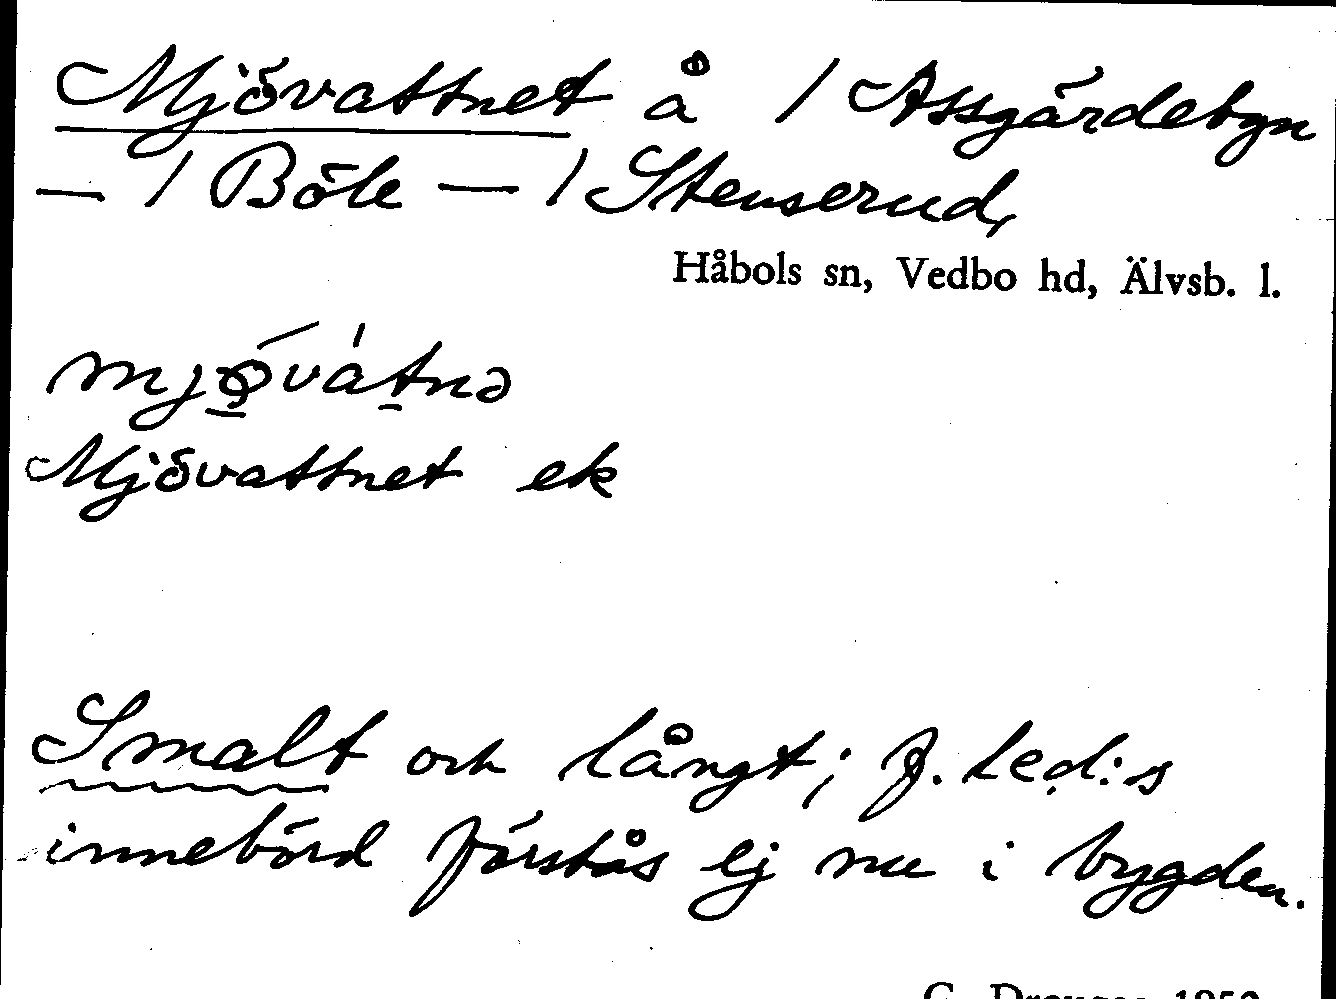 Mjövattnet å / Assgärdebyn
— / Böle — / Stenserud,
Håbols sn, Vedbo hd, Älvsb. l.
Mjövattnet ek
Smalt och långt; f. led:s
innebörd förstås ej nu i bygden.